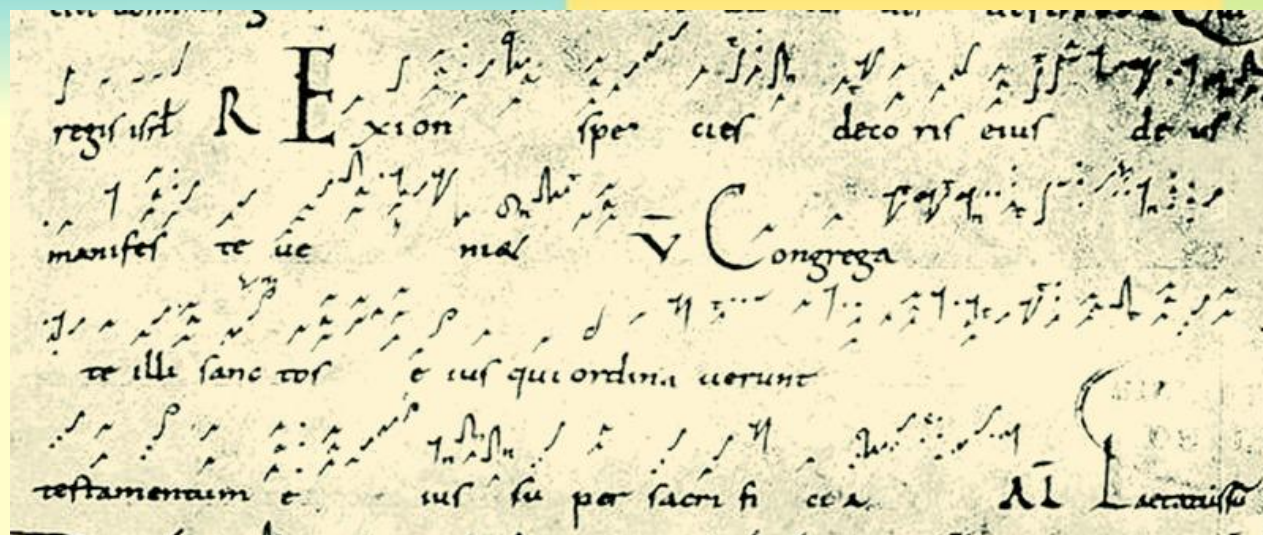 regis isrl R E xion spe cies deco ris eius de us
manifes te ue ni& V Congrega
te illi sanc tos e ius qui ordina uerunt
testamentum e ius su per sacri fi cia Al